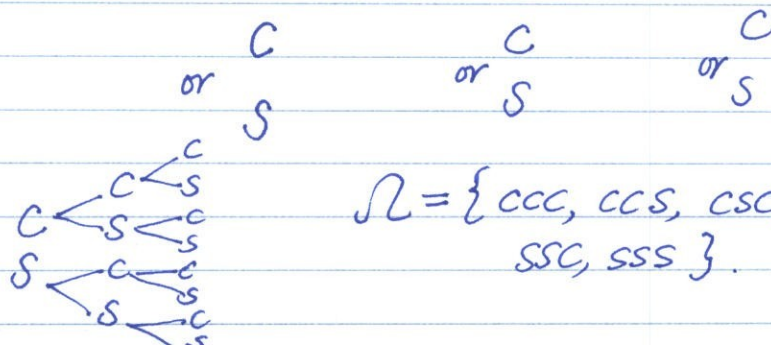 C C C
or or or
S S S
C
C S
C S C
S
S C C
S
S C
S
Ω = { CCC, CCS, CSC
SSC, SSS }.